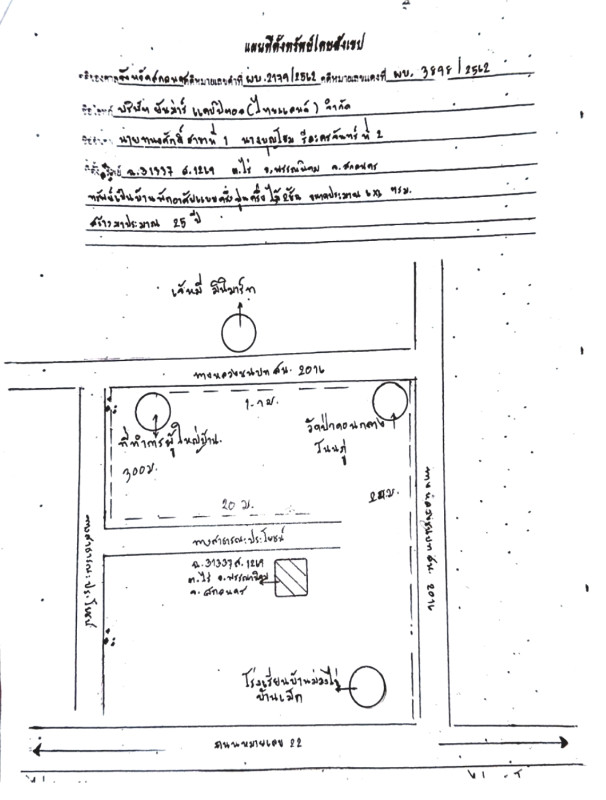 แผนที่ตั้งทรัพย์โดยสังเขป
จังหวัดสกลนคร คดีหมายเลขดำที่ ผบ.2179/2562 คดีหมายเลขแดงที่ ผบ. 3898/2562
บริษัท แคปปิตอล (ไทยแลนด์) จำกัด
ที่ 1 นางบุญโฮม ที่ 2
ฉ.31337 ส.1269 ต.ไร่ อ.พรรณานิคม จ.สกลนคร
ทรัพย์เป็นบ้านพักอาศัยแบบครึ่งปูนครึ่งไม้ 2ชั้น ขนาดประมาณ ตรม.
สร้างมาประมาณ 25 ปี
เจ๊หมี่ มินิมาร์ท
ทางหลวงชนบท สน. 2016
1 กม.
ที่ทำการผู้ใหญ่บ้าน
วัดป่าดอนกลาง
โนนภู่
300 ม.
20 ม.
ทางสาธารณะประโยชน์
ทางสาธารณะประโยชน์
ทางหลวงชนบท สน. 2016
ฉ.31337 ส.1269
ต.ไร่ อ.พรรณานิคม
จ.สกลนคร
โรงเรียนบ้านม่วงไข่
ถนนหมายเลข 22